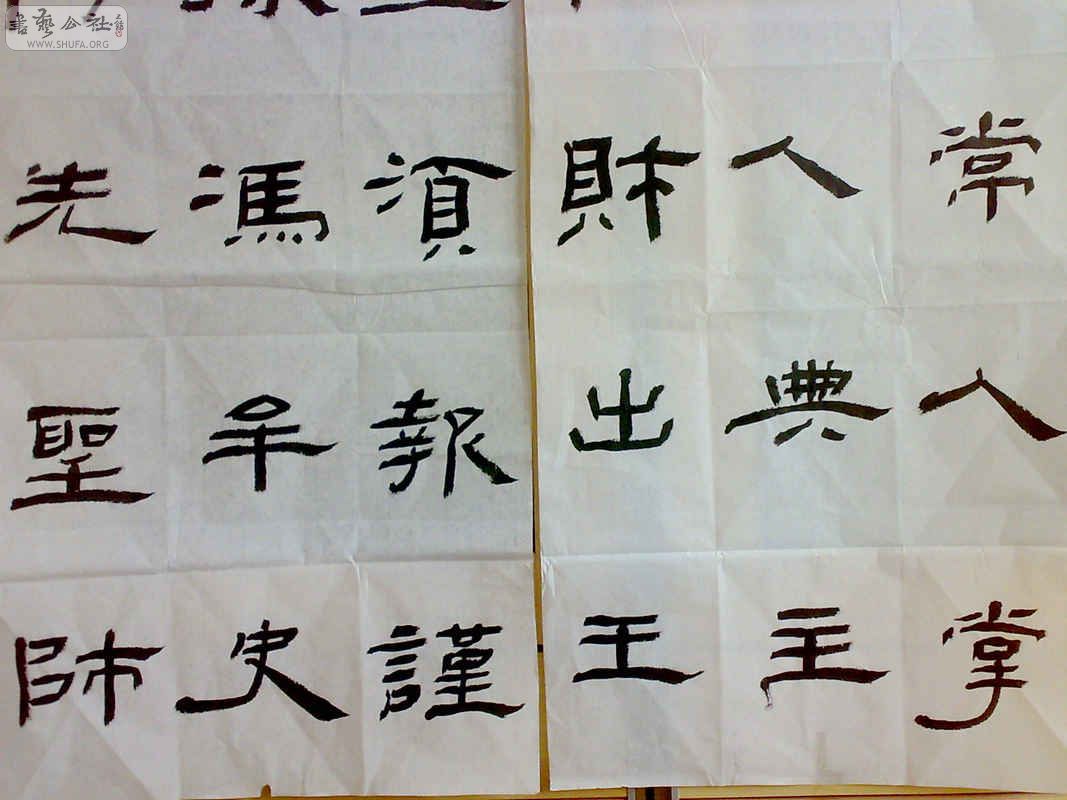 常人掌
人典主
財出王
須報謹
馮牟史
先聖師
書藝公社
WWW.SHUFA.ORG